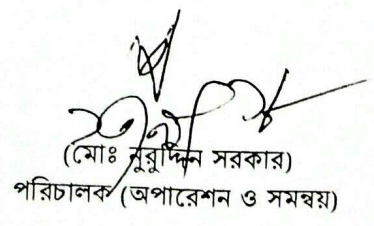 (মোঃ নুরুদ্দিন সরকার)
পরিচালক (অপারেশন ও সমন্বয়)